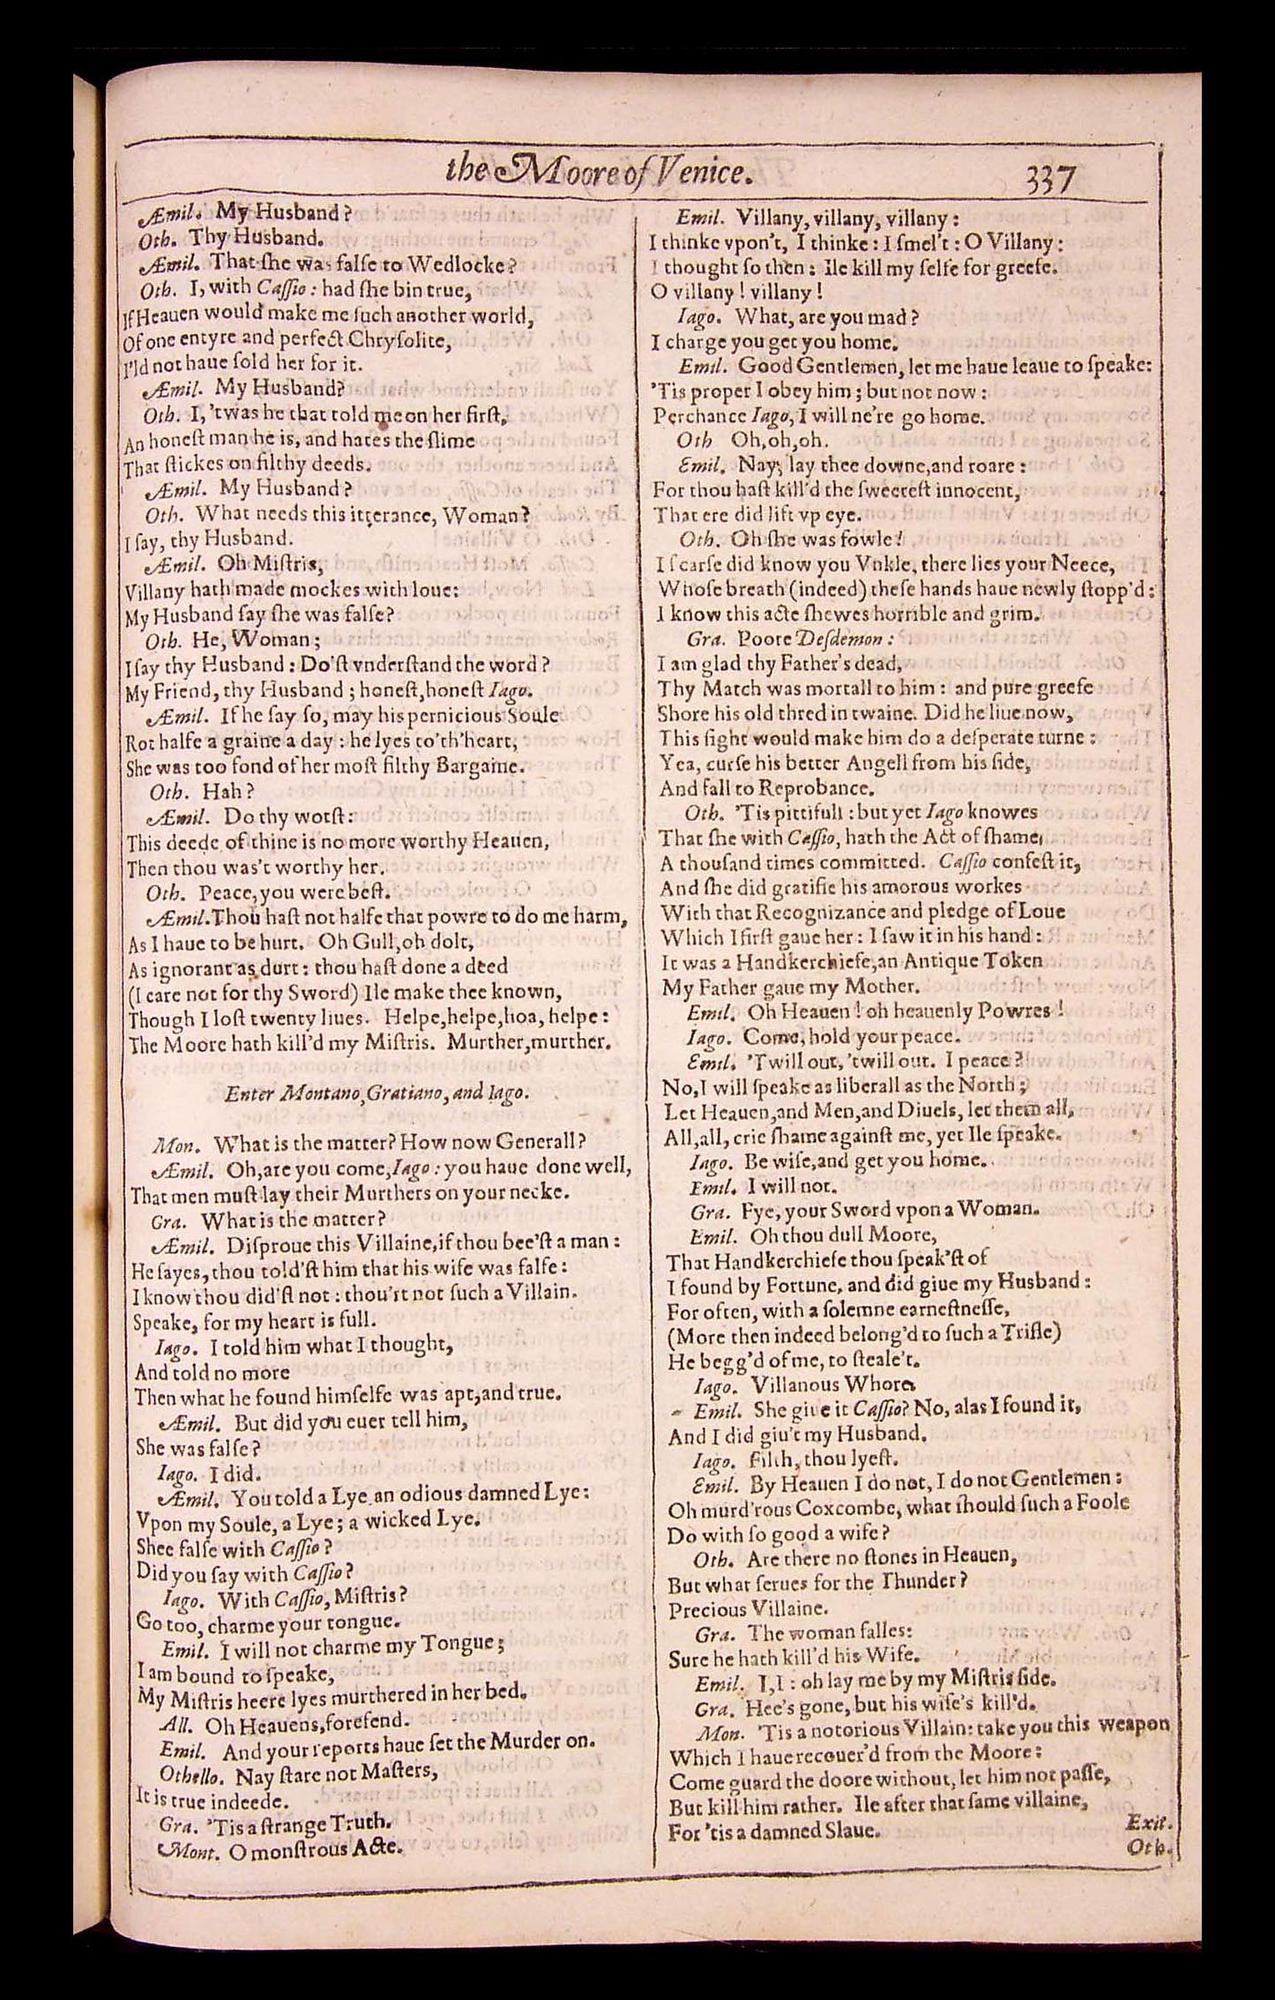 the Moore of Venice. 337
Æmil. My Husband?
Oth. Thy Husband.
Æmil. That ſhe was falſe to Wedlocke?
Oth. I, with Caſſio: had ſhe bin true,
If Heauen would make me ſuch another world,
Of one entyre and perfect Chryſolite,
I'ld not haue ſold her for it.
Æmil. My Husband?
Oth. I, 'twas he that told me on her firſt,
An honeſt man he is, and hates the ſlime
That ſtickes on filthy deeds.
Æmil. My Husband?
Oth. What needs this itterance, Woman?
I ſay, thy Husband.
Æmil. Oh Miſtris,
Villany hath made mockes with loue:
My Husband ſay ſhe was falſe?
Oth. He, Woman;
I ſay thy Husband: Do'ſt vnderſtand the word?
My Friend, thy Husband; honeſt, honeſt Iago.
Æmil. If he ſay ſo, may his pernicious Soule
Rot halfe a graine a day: he lyes to'th'heart,
She was too fond of her moſt filthy Bargaine.
Oth. Hah?
Æmil. Do thy worſt:
This deede of thine is no more worthy Heauen,
Then thou was't worthy her.
Oth. Peace, you were beſt.
Æmil. Thou haſt not halfe that powre to do me harm,
As I haue to be hurt. Oh Gull, oh dolt,
As ignorant as durt: thou haſt done a deed
(I care not for thy Sword) Ile make thee known,
Though I loſt twenty liues. Helpe, helpe, hoa, helpe:
The Moore hath kill'd my Miſtris. Murther, murther.
Enter Montano, Gratiano, and Iago.
Mon. What is the matter? How now Generall?
Æmil. Oh, are you come, Iago: you haue done well,
That men muſt lay their Murthers on your necke.
Gra. What is the matter?
Æmil. Diſproue this Villaine, if thou bee'ſt a man:
He ſayes, thou told'ſt him that his wife was falſe:
I know thou did'ſt not: thou'rt not ſuch a Villain.
Speake, for my heart is full.
Iago. I told him what I thought,
And told no more
Then what he found himſelfe was apt, and true.
Æmil. But did you euer tell him,
She was falſe?
Iago. I did.
Æmil. You told a Lye, an odious damned Lye:
Vpon my Soule, a Lye; a wicked Lye.
Shee falſe with Caſſio?
Did you ſay with Caſſio?
Iago. With Caſſio, Miſtris?
Go too, charme your tongue.
Emil. I will not charme my Tongue;
I am bound to ſpeake,
My Miſtris heere lyes murthered in her bed.
All. Oh Heauens, forefend.
Emil. And your reports haue ſet the Murder on.
Othello. Nay ſtare not Maſters,
It is true indeede.
Gra. 'Tis a ſtrange Truth.
Mont. O monſtrous Acte.
Emil. Villany, villany, villany:
I thinke vpon't, I thinke: I ſmel't: O Villany:
I thought ſo then: Ile kill my ſelfe for greefe.
O villany! villany!
Iago. What, are you mad?
I charge you get you home.
Emil. Good Gentlemen, let me haue leaue to ſpeake:
'Tis proper I obey him; but not now:
Perchance Iago, I will ne're go home.
Oth Oh, oh, oh.
Emil. Nay, lay thee downe, and roare:
For thou haſt kill'd the ſweeteſt innocent,
That ere did lift vp eye.
Oth. Oh ſhe was fowle!
I ſcarſe did know you Vnkle, there lies your Neece,
Whoſe breath (indeed) theſe hands haue newly ſtopp'd:
I know this acte ſhewes horrible and grim.
Gra. Poore Deſdemon:
I am glad thy Father's dead,
Thy Match was mortall to him: and pure greefe
Shore his old thred in twaine. Did he liue now,
This ſight would make him do a deſperate turne:
Yea, curſe his better Angell from his ſide,
And fall to Reprobance.
Oth. 'Tis pittifull: but yet Iago knowes
That ſhe with Caſſio, hath the Act of ſhame
A thouſand times committed. Caſſio confeſt it,
And ſhe did gratifie his amorous workes
With that Recognizance and pledge of Loue
Which I firſt gaue her: I ſaw it in his hand:
It was a Handkerchiefe, an Antique Token
My Father gaue my Mother.
Emil. Oh Heauen! oh heauenly Powres!
Iago. Come, hold your peace.
Emil. 'Twill out, 'twill out. I peace?
No, I will ſpeake as liberall as the North;
Let Heauen, and Men, and Diuels, let them all,
All, all, crie ſhame againſt me, yet Ile ſpeake.
Iago. Be wiſe, and get you home.
Emil. I will not.
Gra. Fye, your Sword vpon a Woman.
Emil. Oh thou dull Moore,
That Handkerchiefe thou ſpeak'ſt of
I found by Fortune, and did giue my Husband:
For often, with a ſolemne earneſtneſſe,
(More then indeed belong'd to ſuch a Trifle)
He begg'd of me, to ſteale't.
Iago. Villanous Whore
Emil. She giue it Caſſio? No, alas I found it,
And I did giu't my Husband.
Iago. Filth, thou lyeſt.
Emil. By Heauen I do not, I do not Gentlemen:
Oh murd'rous Coxcombe, what ſhould ſuch a Foole
Do with ſo good a wife?
Oth. Are there no ſtones in Heauen,
But what ſerues for the Thunder?
Precious Villaine.
Gra. The woman falles:
Sure he hath kill'd his Wife.
Emil. I, I: oh lay me by my Miſtris ſide.
Gra. Hee's gone, but his wife's kill'd.
Mon. 'Tis a notorious Villain: take you this weapon
Which I haue recouer'd from the Moore:
Come guard the doore without, let him not paſſe,
But kill him rather. Ile after that ſame villaine,
For 'tis a damned Slaue. Exit.
Oth.